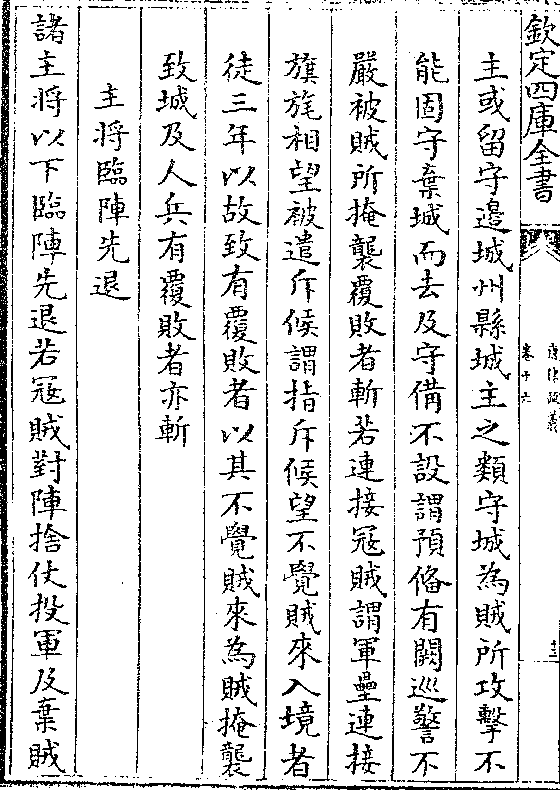 欽定四庫全書
唐律疏義
卷十六
主或留守邉城州縣城主之類守城為賊所攻擊不
能固守棄城而去及守備不設謂預俻有闕巡警不
嚴被賊所掩襲覆敗者斬若連接冦賊謂軍壘連接
旗旄相望被遣斥候謂指斥候望不覺賊來入境者
徒三年以故致有覆敗者以其不覺賊來為賊掩襲
致城及人兵有覆敗者亦斬
主將臨陣先退
諸主將以下臨陣先退若冦賊對陣捨仗投軍及棄賊